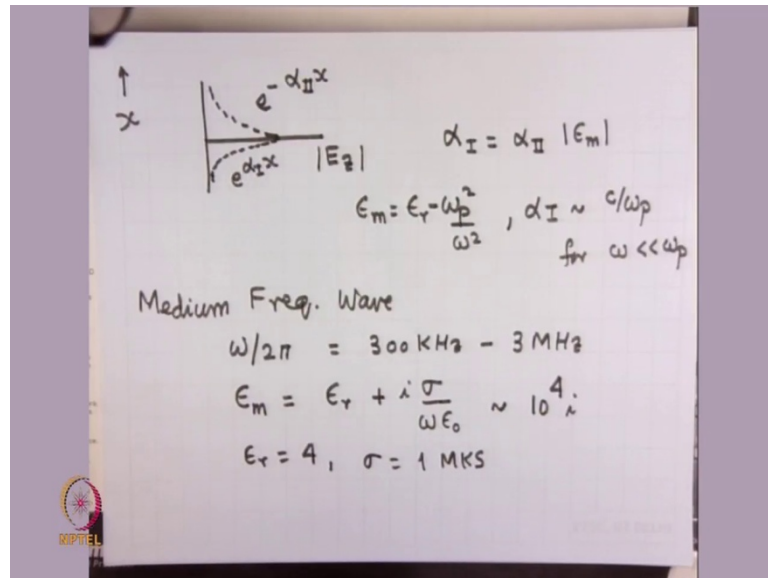 ↑
x
e^{-α_{II}x}
e^{α_I x}
|E_z|
α_I = α_{II} |ϵ_m|
ϵ_m = ϵ_r - ω_p^2/ω^2 , α_I ~ c/ω_p
for ω << ω_p
Medium Freq. Wave
ω/2π = 300 KHz - 3 MHz
ϵ_m = ϵ_r + i σ/(ω ϵ_0) ~ 10^4 i
ϵ_r = 4 , σ = 1 MKS
NPTEL